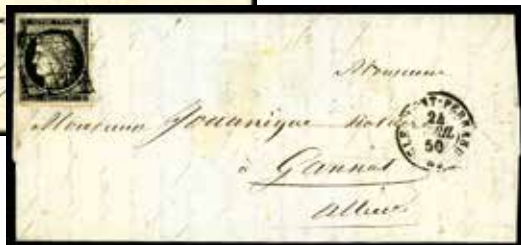 Monsieur
Monsieur Jouannique
à Gannat
Allier
CLERMONT-FERRAND
24
AVRIL
50